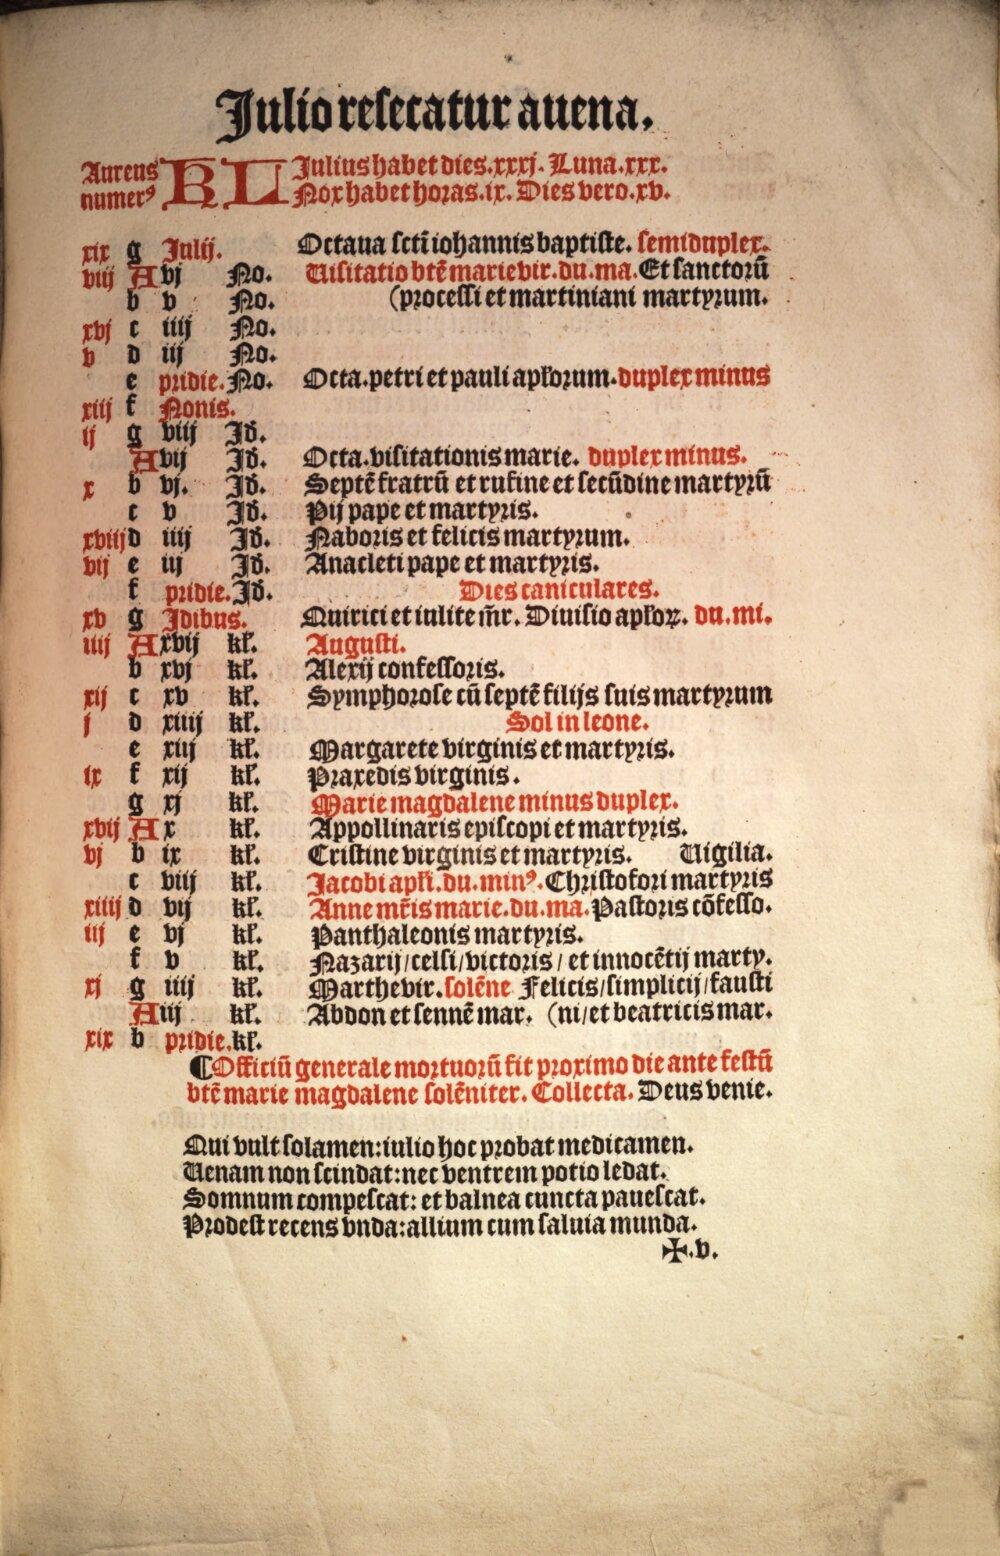 Julio resecatur auena.
Aureus KL Julius habet dies.xxxj. Luna.xxx.
numerꝰ Nox habet horas.ix. Dies vero.xv.
xix g Julij. Octaua sctī iohannis baptiste. semiduplex.
viij A vj No. Uisitatio btē marie vir.du.ma. Et sanctorū
b v No. (processi et martiniani martyrum.
xvj c iiij No.
v d iij No.
e pridie. No. Octa.petri et pauli apłorum. duplex minus
xiij f Nonis.
ij g viij Id.
A vij Id. Octa.visitationis marie. duplex minus.
x b vj. Id. Septē fratrū et rufine et secūdine martyrū
c v Id. Pij pape et martyris.
xviij d iiij Id. Naboris et felicis martyrum.
vij e iij Id. Anacleti pape et martyris.
f pridie. Id. Dies caniculares.
xv g Idibus. Quirici et iulite m̄r. Diuisio apłoꝝ. du.mi.
iiij A xvij kł. Augusti.
b xvj kł. Alexij confessoris.
xij c xv kł. Symphorose cū septē filijs suis martyrum
j d xiiij kł. Sol in leone.
e xiij kł. Margarete virginis et martyris.
ix f xij kł. Praxedis virginis.
g xj kł. Marie magdalene minus duplex.
xvij A x kł. Appollinaris episcopi et martyris.
vj b ix kł. Cristine virginis et martyris. Uigilia.
c viij kł. Jacobi apłi.du.minꝰ. Christofori martyris
xiiij d vij kł. Anne mr̄is marie.du.ma. Pastoris cōfesso.
iij e vj kł. Panthaleonis martyris.
f v kł. Nazarij/celsi/victoris/et innocētij marty.
xj g iiij kł. Marthe vir. solēne Felicis/simplicij/fausti
A iij kł. Abdon et sennē mar. (ni/et beatricis mar.
xix b pridie. kł.
¶Officiū generale mortuorū fit proximo die ante festū
btē marie magdalene solēniter. Collecta. Deus venie.
Qui vult solamen: iulio hoc probat medicamen.
Uenam non scindat: nec ventrem potio ledat.
Somnum compescat: et balnea cuncta pauescat.
Prodest recens vnda: allium cum saluia munda.
✠.v.